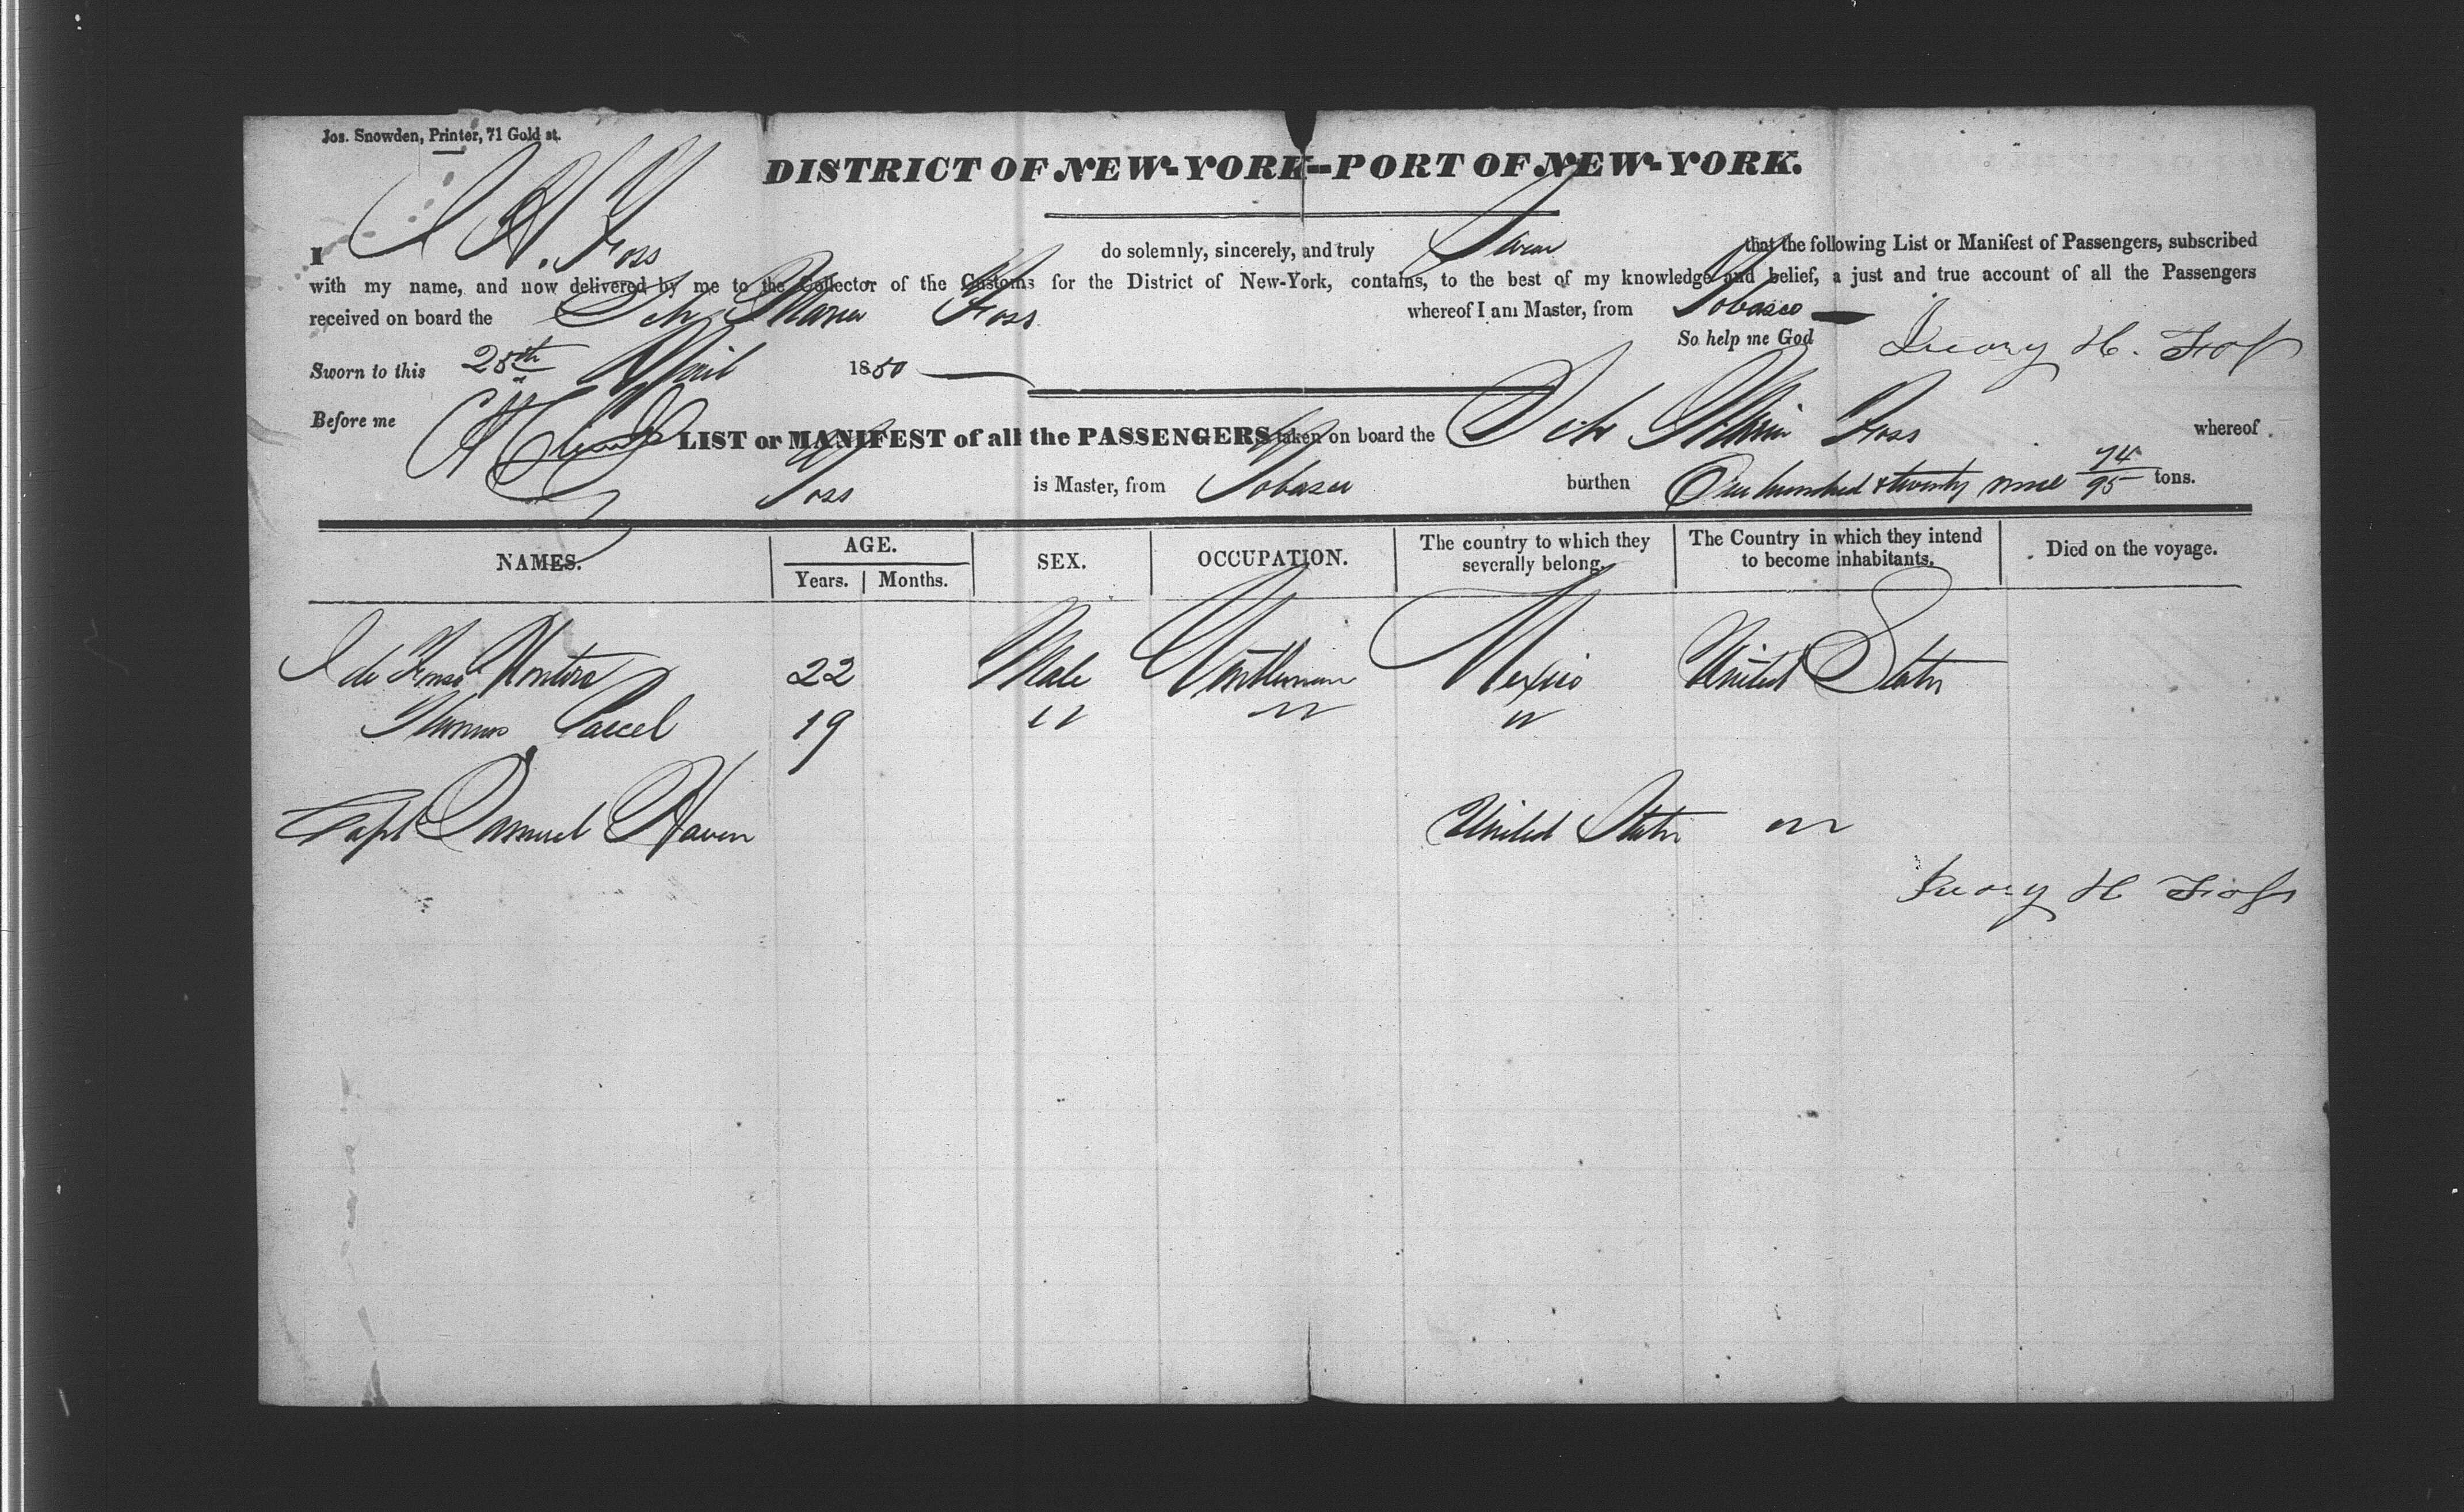 Jos. Snowden, Printer, 71 Gold st.
DISTRICT OF NEW-YORK--PORT OF NEW-YORK.
I I H. Foss do solemnly, sincerely, and truly Swear that the following List or Manifest of Passengers, subscribed
with my name, and now delivered by me to the Collector of the Customs for the District of New-York, contains, to the best of my knowledge and belief, a just and true account of all the Passengers
received on board the Schr Maria Foss whereof I am Master, from Tobasco
So help me God Iveory H. Foss
Sworn to this 25th April 1850
Before me
LIST or MANIFEST of all the PASSENGERS taken on board the Schr Maria Foss whereof
Foss is Master, from Tobasco burthen One hundred & twenty nine 74/95 tons.
NAMES. AGE. SEX. OCCUPATION. The country to which they severally belong. The Country in which they intend to become inhabitants. Died on the voyage.
Years. Months.
22 Male Gentleman Mexico United States
Thomas 19 " " "
Capt Samuel Haven United States "
Iveory H Foss